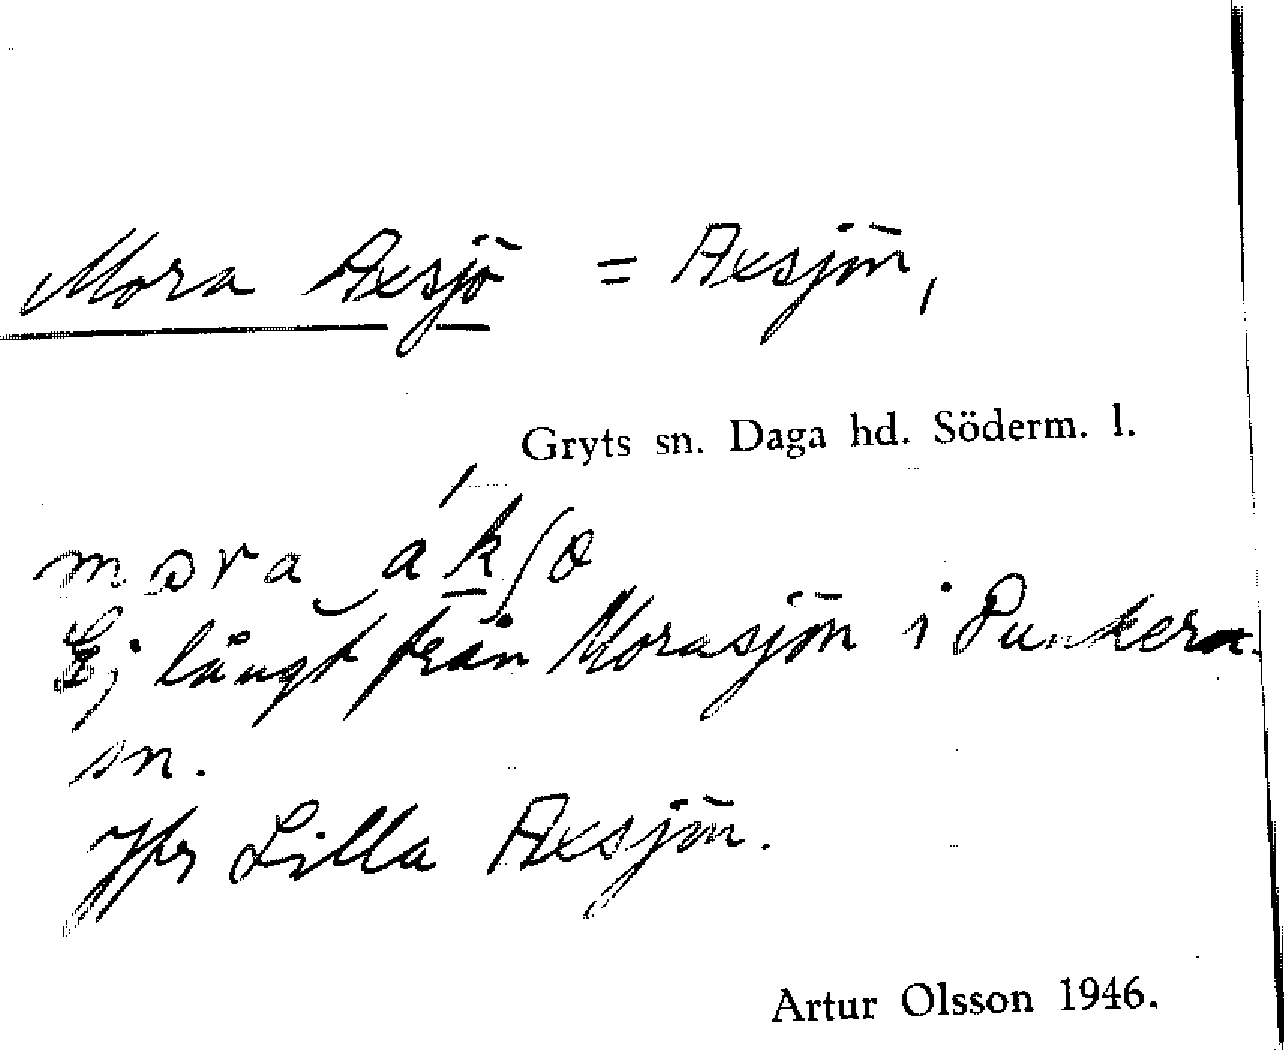 Mora Axsjö = Axsjön,
Gryts sn. Daga hd. Söderm. l.
mora ákʃø
Ej långt från Morasjön i Punkera
sn.
Jfr Lilla Axsjön.
Artur Olsson 1946.